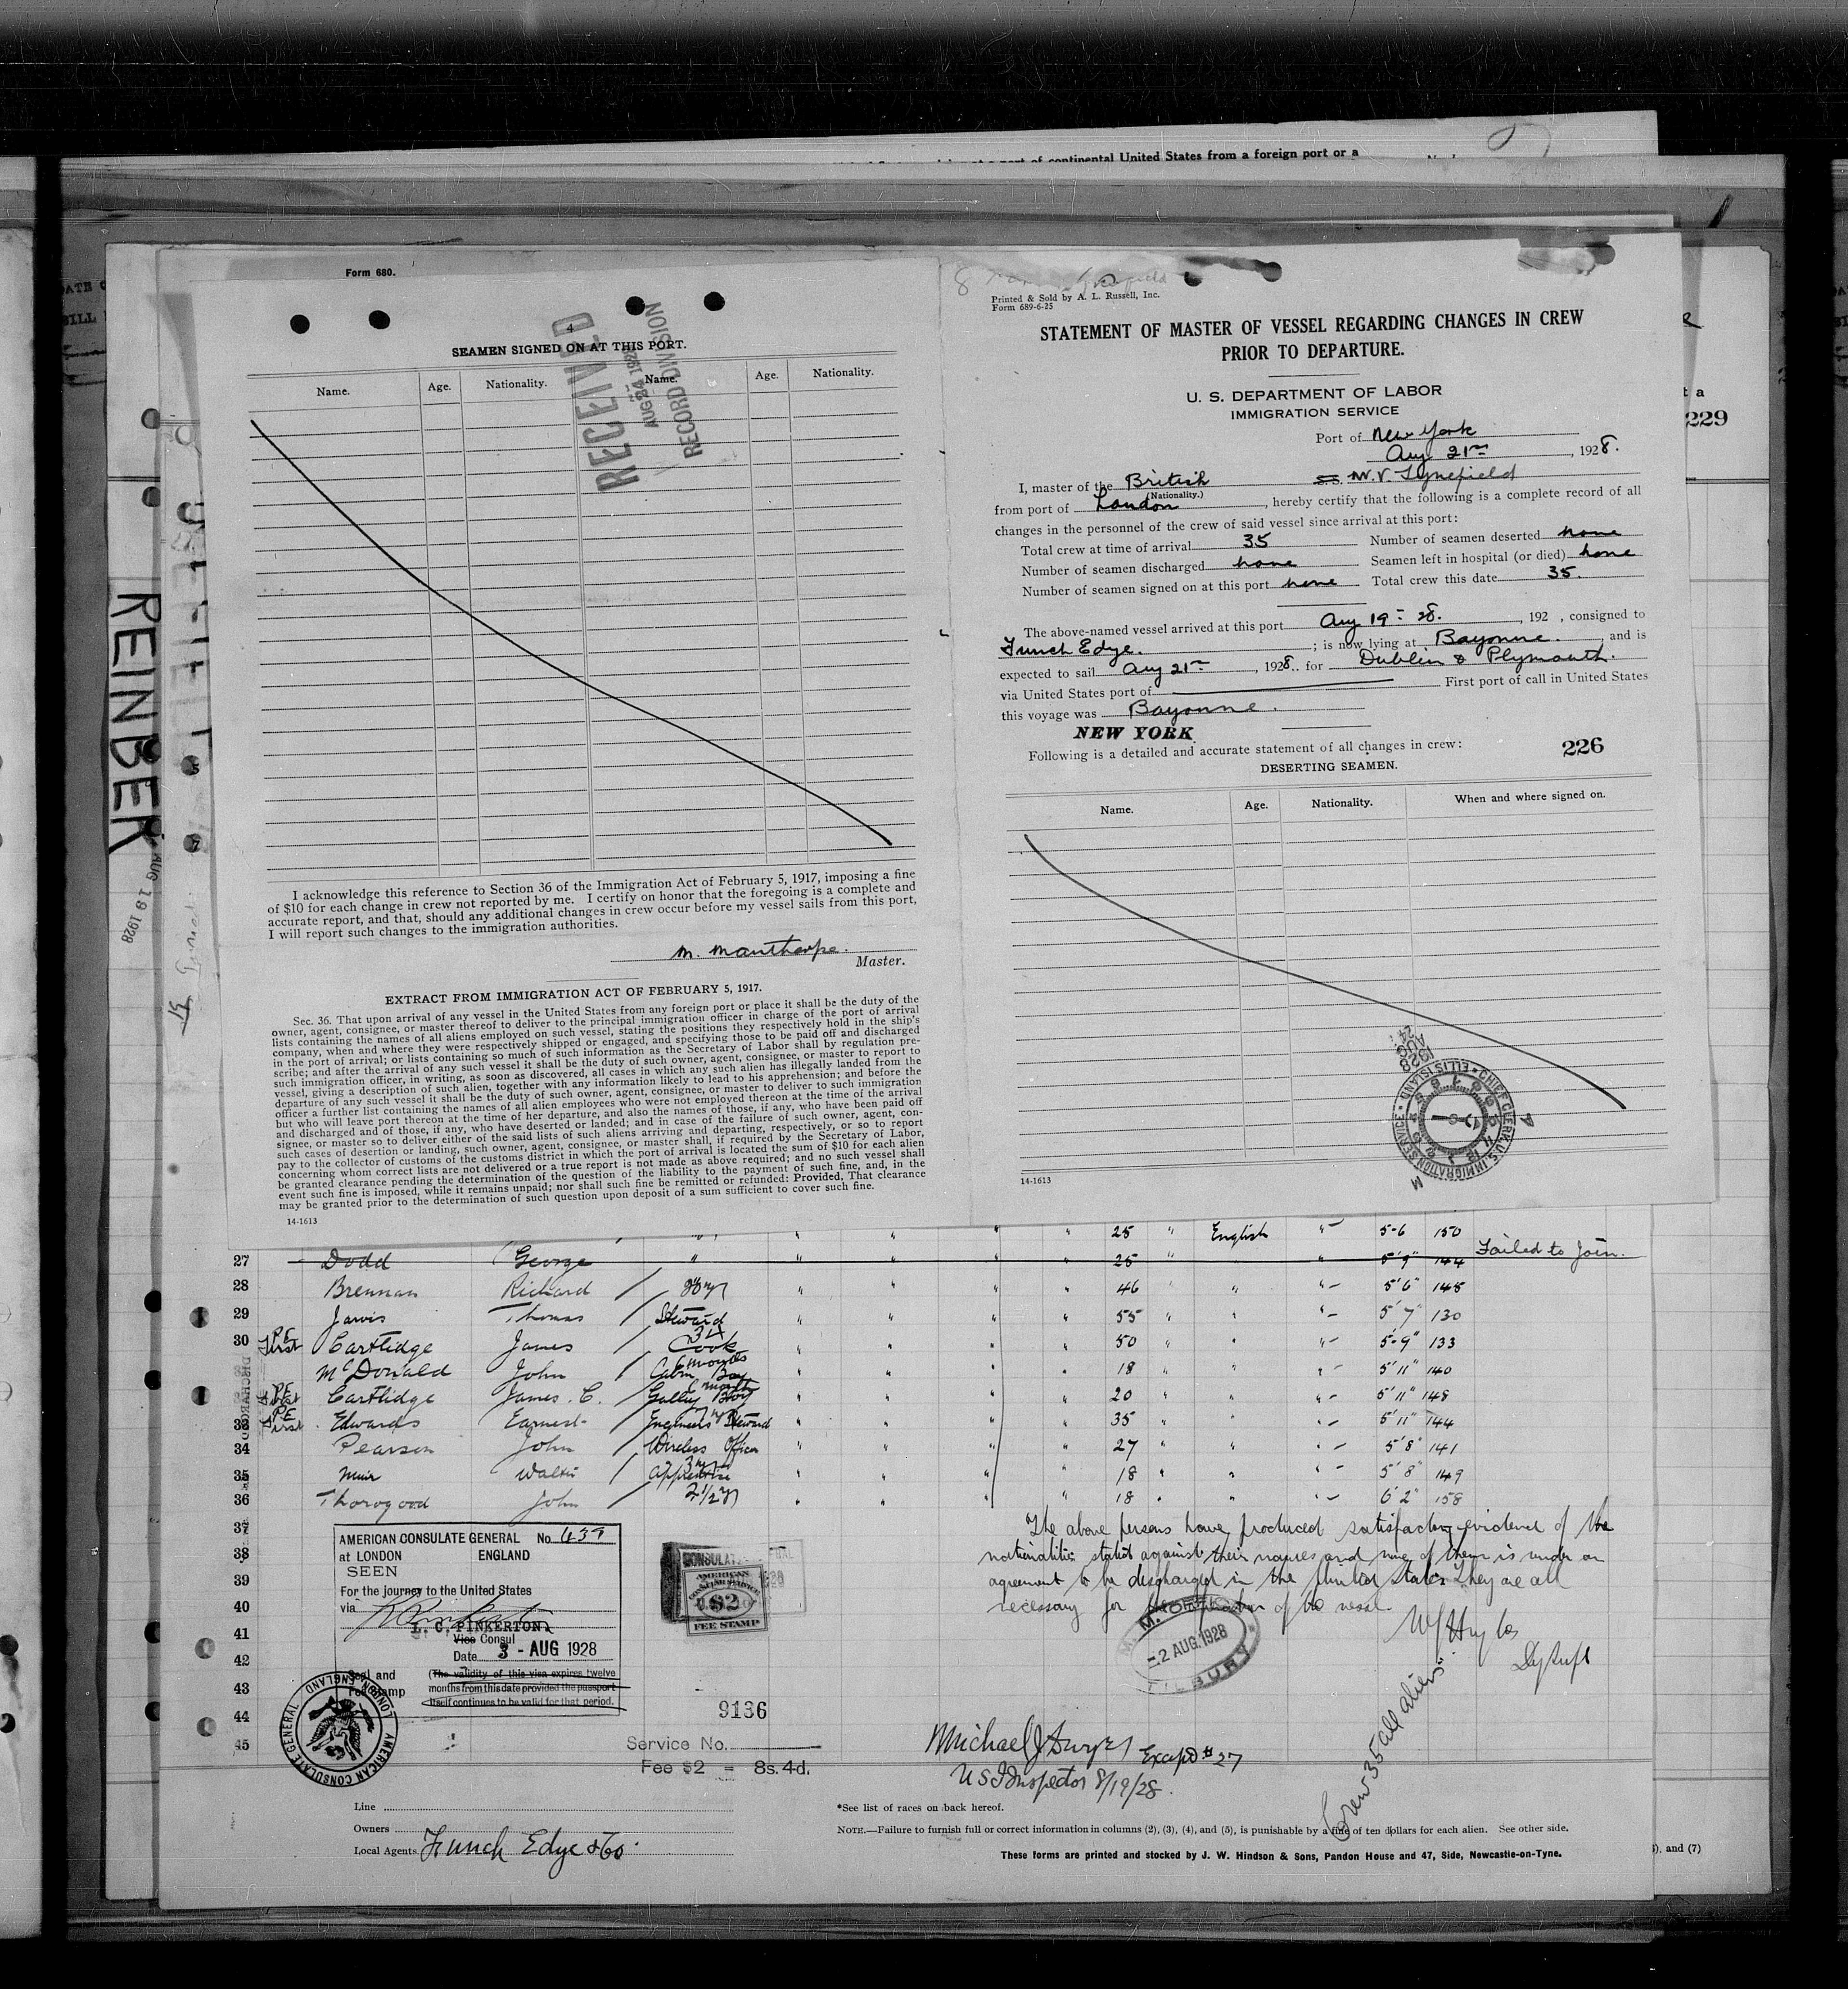 of continental United States from a foreign port or a
Form 680.
4
SEAMEN SIGNED ON AT THIS PORT.
Name. Age. Nationality. Name. Age. Nationality.
RECEIVED
AUG 24 1928
RECORD DIVISION
I acknowledge this reference to Section 36 of the Immigration Act of February 5, 1917, imposing a fine
of $10 for each change in crew not reported by me. I certify on honor that the foregoing is a complete and
accurate report, and that, should any additional changes in crew occur before my vessel sails from this port,
I will report such changes to the immigration authorities.
M. Manthorpe.
Master.
EXTRACT FROM IMMIGRATION ACT OF FEBRUARY 5, 1917.
Sec. 36. That upon arrival of any vessel in the United States from any foreign port or place it shall be the duty of the
owner, agent, consignee, or master thereof to deliver to the principal immigration officer in charge of the port of arrival
lists containing the names of all aliens employed on such vessel, stating the positions they respectively hold in the ship's
company, when and where they were respectively shipped or engaged, and specifying those to be paid off and discharged
in the port of arrival; or lists containing so much of such information as the Secretary of Labor shall by regulation pre-
scribe; and after the arrival of any such vessel it shall be the duty of such owner, agent, consignee, or master to report to
such immigration officer, in writing, as soon as discovered, all cases in which any such alien has illegally landed from the
vessel, giving a description of such alien, together with any information likely to lead to his apprehension; and before the
departure of any such vessel it shall be the duty of such owner, agent, consignee, or master to deliver to such immigration
officer a further list containing the names of all alien employees who were not employed thereon at the time of the arrival
but who will leave port thereon at the time of her departure, and also the names of those, if any, who have been paid off
and discharged and of those, if any, who have deserted or landed; and in case of the failure of such owner, agent, con-
signee, or master so to deliver either of the said lists of such aliens arriving and departing, respectively, or so to report
such cases of desertion or landing, such owner, agent, consignee, or master shall, if required by the Secretary of Labor,
pay to the collector of customs of the customs district in which the port of arrival is located the sum of $10 for each alien
concerning whom correct lists are not delivered or a true report is not made as above required; and no such vessel shall
be granted clearance pending the determination of the question of the liability to the payment of such fine, and, in the
event such fine is imposed, while it remains unpaid; nor shall such fine be remitted or refunded: Provided, That clearance
may be granted prior to the determination of such question upon deposit of a sum sufficient to cover such fine.
14-1613
Printed & Sold by A. L. Russell, Inc.
Form 689-6-25
STATEMENT OF MASTER OF VESSEL REGARDING CHANGES IN CREW
PRIOR TO DEPARTURE.
U. S. DEPARTMENT OF LABOR
IMMIGRATION SERVICE
Port of New York
Aug 21st, 1928.
I, master of the British S.S. M.V. Tynefield
(Nationality.)
from port of London, hereby certify that the following is a complete record of all
changes in the personnel of the crew of said vessel since arrival at this port:
Total crew at time of arrival 35 Number of seamen deserted none
Number of seamen discharged none Seamen left in hospital (or died) none
Number of seamen signed on at this port none Total crew this date 35.
The above-named vessel arrived at this port Aug 19 - 28., 192 , consigned to
Funch Edye. ; is now lying at Bayonne. , and is
expected to sail Aug 21st, 1928. for Dublin & Plymouth.
via United States port of First port of call in United States
this voyage was Bayonne.
NEW YORK
Following is a detailed and accurate statement of all changes in crew: 226
DESERTING SEAMEN.
Name. Age. Nationality. When and where signed on.
CHIEF CLERK, U.S. IMMIGRATION SERVICE, ELLIS ISLAND
1928
AUG
14-1613
229
REINBER
AUG 19 1928
25 " English "- 5-6 150
27 Dodd George " " " " " 25 " 5'9" 144 Failed to Join.
28 Brennan Richard " " " " 46 " " "- 5'6" 145
29 Jarvis Thomas Steward " " " " 55 " " "- 5'7" 130
30 Cartlidge James Cook " " " " 50 " " "- 5-9" 133
McDonald John Cabin Boy " " " " 18 " " "- 5'11" 140
Cartlidge James. C. Galley Boy " " " " 20 " " "- 5'11" 148
33 Edwards Earnest Engineers Steward " " " " 35 " " "- 5'11" 144
34 Pearson John Wireless Officer " " " " 27 " " "- 5'8" 141
35 Muir Walter Apprentice " " " " 18 " " "- 5'8" 149
36 Thorogood John 2 1/2 " " " " 18 " " "- 6'2" 158
37
38
39
40
41
42
43
44
45
The above persons have produced satisfactory evidence of the
nationalities stated against their names and none of them is under an
agreement to be discharged in the United States. They are all
necessary for the of the vessel.
AMERICAN CONSULATE GENERAL No.
at LONDON ENGLAND
SEEN
For the journey to the United States
via
L. C. PINKERTON
Vice Consul
Date 3 - AUG 1928
Seal and
Fee Stamp
(The validity of this visa expires twelve
months from this date provided the passport
itself continues to be valid for that period.
AMERICAN CONSULATE GENERAL LONDON, ENGLAND
AMERICAN
CONSULAR SERVICE
$2
FEE STAMP
M.
-2 AUG. 1928
TILBURY
9136
Service No.
Fee $2 = 8s. 4d.
Michael J Dwyer Except #27
US Inspector 8/19/28.
Crew 35 all aliens.
Line
Owners
Local Agents Funch Edye & Co.
*See list of races on back hereof.
NOTE.—Failure to furnish full or correct information in columns (2), (3), (4), and (5), is punishable by a fine of ten dollars for each alien. See other side.
These forms are printed and stocked by J. W. Hindson & Sons, Pandon House and 47, Side, Newcastle-on-Tyne.
), and (7)